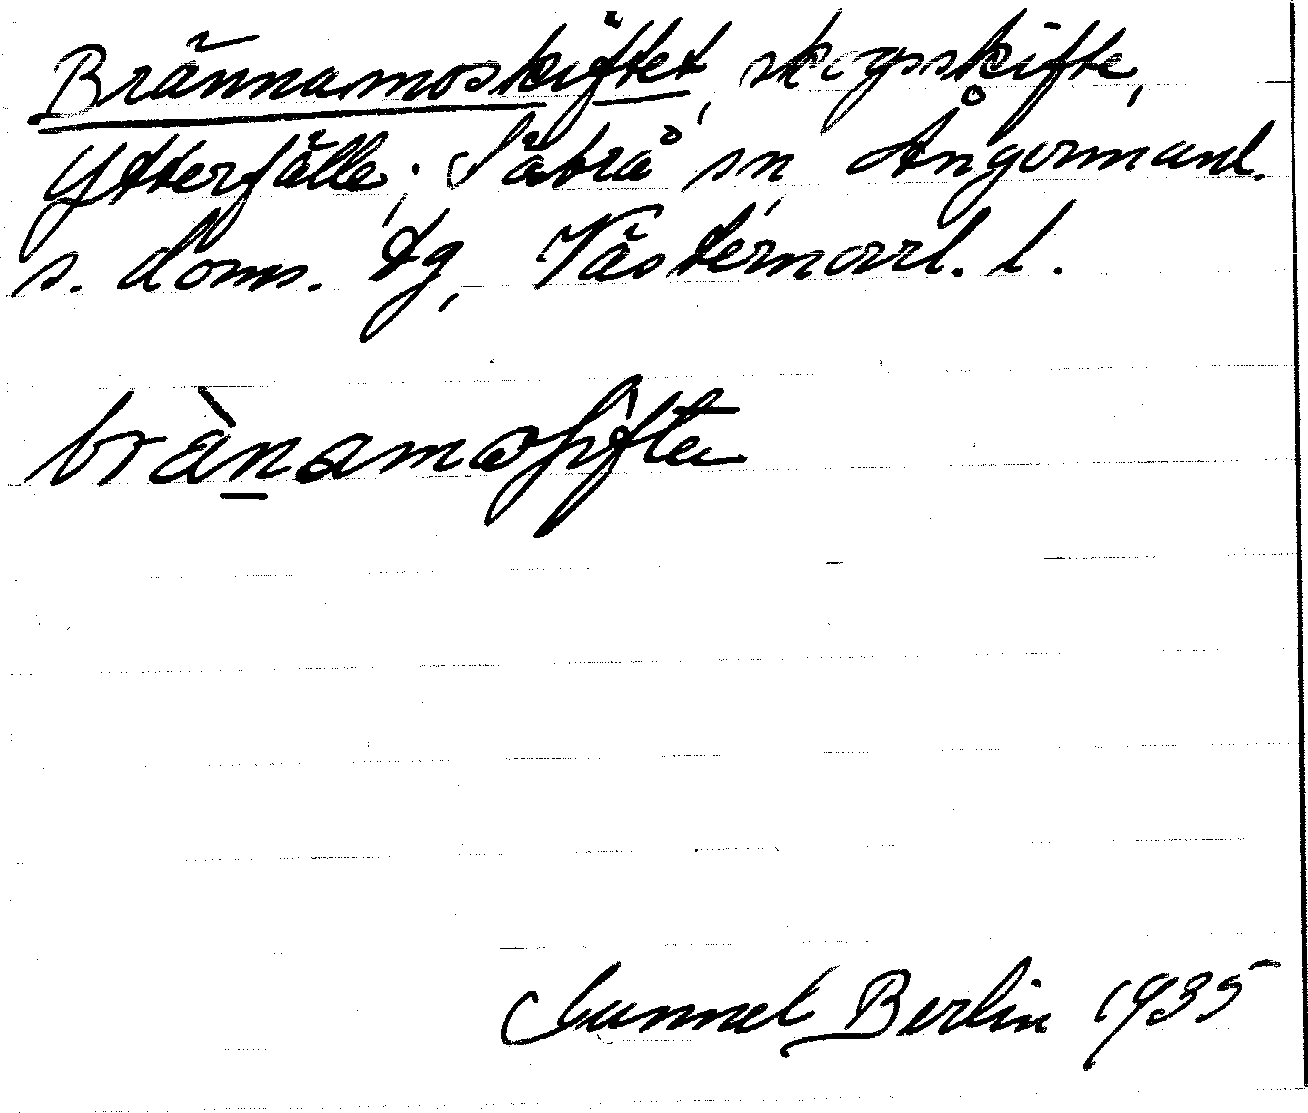 Brännamoskiftet, skogsskifte,
Ytterfälle, Säbrå sn, Ångermanl.
s. doms. tg, Västernorrl. l.
brànamoʃifta
Gunnel Berlin 1935